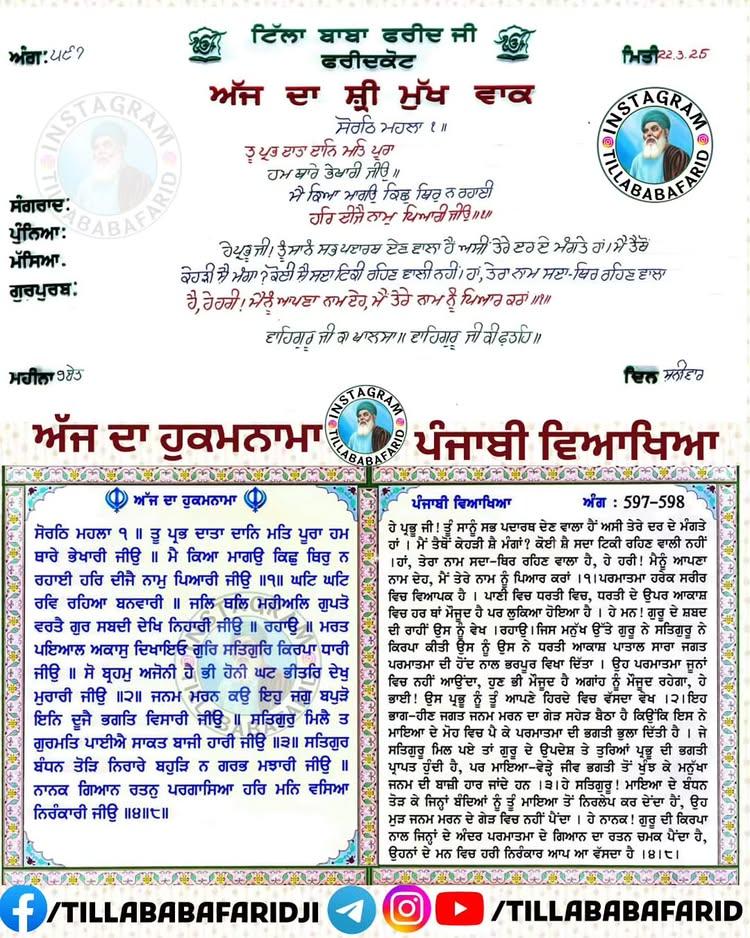 ਟਿੱਲਾ ਬਾਬਾ ਫਰੀਦ ਜੀ
ਫਰੀਦਕੋਟ
ਅੰਗ: ੫੯੭
ਮਿਤੀ 22.3.25
ਅੱਜ ਦਾ ਸ਼੍ਰੀ ਮੁੱਖ ਵਾਕ
INSTAGRAM
TILLABABAFARID
INSTAGRAM
TILLABABAFARID
ਸੋਰਠਿ ਮਹਲਾ ੧ ॥
ਤੂ ਪ੍ਰਭ ਦਾਤਾ ਦਾਨਿ ਮਤਿ ਪੂਰਾ
ਹਮ ਥਾਰੇ ਭੇਖਾਰੀ ਜੀਉ ॥
ਮੈ ਕਿਆ ਮਾਗਉ ਕਿਛੁ ਥਿਰੁ ਨ ਰਹਾਈ
ਹਰਿ ਦੀਜੈ ਨਾਮੁ ਪਿਆਰੀ ਜੀਉ ॥੧॥
ਸੰਗਰਾਦ:
ਪੁੰਨਿਆ:
ਮੱਸਿਆ:
ਗੁਰਪੁਰਬ:
ਹੇ ਪ੍ਰਭੂ ਜੀ! ਤੂੰ ਸਾਨੂੰ ਸਭ ਪਦਾਰਥ ਦੇਣ ਵਾਲਾ ਹੈ ਅਸੀਂ ਤੇਰੇ ਦਰ ਦੇ ਮੰਗਤੇ ਹਾਂ। ਮੈਂ ਤੈਥੋਂ
ਕੇਹੜੀ ਸ਼ੈ ਮੰਗਾ? ਕੋਈ ਸ਼ੈ ਸਦਾ ਟਿਕੀ ਰਹਿਣ ਵਾਲੀ ਨਹੀਂ। ਹਾਂ, ਤੇਰਾ ਨਾਮ ਸਦਾ-ਥਿਰ ਰਹਿਣ ਵਾਲਾ
ਹੈ, ਹੇ ਹਰੀ! ਮੈਨੂੰ ਆਪਣਾ ਨਾਮ ਦੇਹ, ਮੈਂ ਤੇਰੇ ਨਾਮ ਨੂੰ ਪਿਆਰ ਕਰਾਂ ॥੧॥
ਵਾਹਿਗੁਰੂ ਜੀ ਕਾ ਖਾਲਸਾ॥ ਵਾਹਿਗੁਰੂ ਜੀ ਕੀ ਫਤਹਿ॥
ਮਹੀਨਾ ੧ਚੇਤ
ਦਿਨ ਸ਼ਨੀਵਾਰ
ਅੱਜ ਦਾ ਹੁਕਮਨਾਮਾ
INSTAGRAM
TILLABABAFARID
ਪੰਜਾਬੀ ਵਿਆਖਿਆ
ਅੱਜ ਦਾ ਹੁਕਮਨਾਮਾ
ਸੋਰਠਿ ਮਹਲਾ ੧ ॥ ਤੂ ਪ੍ਰਭ ਦਾਤਾ ਦਾਨਿ ਮਤਿ ਪੂਰਾ ਹਮ
ਥਾਰੇ ਭੇਖਾਰੀ ਜੀਉ ॥ ਮੈ ਕਿਆ ਮਾਗਉ ਕਿਛੁ ਥਿਰੁ ਨ
ਰਹਾਈ ਹਰਿ ਦੀਜੈ ਨਾਮੁ ਪਿਆਰੀ ਜੀਉ ॥੧॥ ਘਟਿ ਘਟਿ
ਰਵਿ ਰਹਿਆ ਬਨਵਾਰੀ ॥ ਜਲਿ ਥਲਿ ਮਹੀਅਲਿ ਗੁਪਤੋ
ਵਰਤੈ ਗੁਰ ਸਬਦੀ ਦੇਖਿ ਨਿਹਾਰੀ ਜੀਉ ॥ ਰਹਾਉ ॥ ਮਰਤ
ਪਇਆਲ ਅਕਾਸੁ ਦਿਖਾਇਓ ਗੁਰਿ ਸਤਿਗੁਰਿ ਕਿਰਪਾ ਧਾਰੀ
ਜੀਉ ॥ ਸੋ ਬ੍ਰਹਮੁ ਅਜੋਨੀ ਹੈ ਭੀ ਹੋਨੀ ਘਟ ਭੀਤਰਿ ਦੇਖੁ
ਮੁਰਾਰੀ ਜੀਉ ॥੨॥ ਜਨਮ ਮਰਨ ਕਉ ਇਹੁ ਜਗੁ ਬਪੁੜੋ
ਇਨਿ ਦੂਜੈ ਭਗਤਿ ਵਿਸਾਰੀ ਜੀਉ ॥ ਸਤਿਗੁਰੁ ਮਿਲੈ ਤ
ਗੁਰਮਤਿ ਪਾਈਐ ਸਾਕਤ ਬਾਜੀ ਹਾਰੀ ਜੀਉ ॥੩॥ ਸਤਿਗੁਰ
ਬੰਧਨ ਤੋੜਿ ਨਿਰਾਰੇ ਬਹੁੜਿ ਨ ਗਰਭ ਮਝਾਰੀ ਜੀਉ ॥
ਨਾਨਕ ਗਿਆਨ ਰਤਨੁ ਪਰਗਾਸਿਆ ਹਰਿ ਮਨਿ ਵਸਿਆ
ਨਿਰੰਕਾਰੀ ਜੀਉ ॥੪॥੮॥
INSTAGRAM
TILLABABAFARID
ਪੰਜਾਬੀ ਵਿਆਖਿਆ ਅੰਗ : 597-598
ਹੇ ਪ੍ਰਭੂ ਜੀ! ਤੂੰ ਸਾਨੂੰ ਸਭ ਪਦਾਰਥ ਦੇਣ ਵਾਲਾ ਹੈਂ ਅਸੀਂ ਤੇਰੇ ਦਰ ਦੇ ਮੰਗਤੇ
ਹਾਂ । ਮੈਂ ਤੈਥੋਂ ਕੇਹੜੀ ਸ਼ੈ ਮੰਗਾਂ? ਕੋਈ ਸ਼ੈ ਸਦਾ ਟਿਕੀ ਰਹਿਣ ਵਾਲੀ ਨਹੀਂ
।ਹਾਂ, ਤੇਰਾ ਨਾਮ ਸਦਾ-ਥਿਰ ਰਹਿਣ ਵਾਲਾ ਹੈ, ਹੇ ਹਰੀ! ਮੈਨੂੰ ਆਪਣਾ
ਨਾਮ ਦੇਹ, ਮੈਂ ਤੇਰੇ ਨਾਮ ਨੂੰ ਪਿਆਰ ਕਰਾਂ ।੧।ਪਰਮਾਤਮਾ ਹਰੇਕ ਸਰੀਰ
ਵਿਚ ਵਿਆਪਕ ਹੈ । ਪਾਣੀ ਵਿਚ ਧਰਤੀ ਵਿਚ, ਧਰਤੀ ਦੇ ਉਪਰ ਆਕਾਸ਼
ਵਿਚ ਹਰ ਥਾਂ ਮੌਜੂਦ ਹੈ ਪਰ ਲੁਕਿਆ ਹੋਇਆ ਹੈ । ਹੇ ਮਨ! ਗੁਰੂ ਦੇ ਸ਼ਬਦ
ਦੀ ਰਾਹੀਂ ਉਸ ਨੂੰ ਵੇਖ ।ਰਹਾਉ।ਜਿਸ ਮਨੁੱਖ ਉੱਤੇ ਗੁਰੂ ਨੇ ਸਤਿਗੁਰੂ ਨੇ
ਕਿਰਪਾ ਕੀਤੀ ਉਸ ਨੂੰ ਉਸ ਨੇ ਧਰਤੀ ਆਕਾਸ਼ ਪਾਤਾਲ ਸਾਰਾ ਜਗਤ
ਪਰਮਾਤਮਾ ਦੀ ਹੋਂਦ ਨਾਲ ਭਰਪੂਰ ਵਿਖਾ ਦਿੱਤਾ । ਉਹ ਪਰਮਾਤਮਾ ਜੂਨਾਂ
ਵਿਚ ਨਹੀਂ ਆਉਂਦਾ, ਹੁਣ ਭੀ ਮੌਜੂਦ ਹੈ ਅਗਾਂਹ ਨੂੰ ਮੌਜੂਦ ਰਹੇਗਾ, ਹੇ
ਭਾਈ! ਉਸ ਪ੍ਰਭੂ ਨੂੰ ਤੂੰ ਆਪਣੇ ਹਿਰਦੇ ਵਿਚ ਵੱਸਦਾ ਵੇਖ ।੨।ਇਹ
ਭਾਗ-ਹੀਣ ਜਗਤ ਜਨਮ ਮਰਨ ਦਾ ਗੇੜ ਸਹੇੜ ਬੈਠਾ ਹੈ ਕਿਉਂਕਿ ਇਸ ਨੇ
ਮਾਇਆ ਦੇ ਮੋਹ ਵਿਚ ਪੈ ਕੇ ਪਰਮਾਤਮਾ ਦੀ ਭਗਤੀ ਭੁਲਾ ਦਿੱਤੀ ਹੈ । ਜੇ
ਸਤਿਗੁਰੂ ਮਿਲ ਪਏ ਤਾਂ ਗੁਰੂ ਦੇ ਉਪਦੇਸ਼ ਤੇ ਤੁਰਿਆਂ ਪ੍ਰਭੂ ਦੀ ਭਗਤੀ
ਪ੍ਰਾਪਤ ਹੁੰਦੀ ਹੈ, ਪਰ ਮਾਇਆ-ਵੇੜ੍ਹੇ ਜੀਵ ਭਗਤੀ ਤੋਂ ਖੁੰਝ ਕੇ ਮਨੁੱਖਾ
ਜਨਮ ਦੀ ਬਾਜ਼ੀ ਹਾਰ ਜਾਂਦੇ ਹਨ ।੩।ਹੇ ਸਤਿਗੁਰੂ! ਮਾਇਆ ਦੇ ਬੰਧਨ
ਤੋੜ ਕੇ ਜਿਨ੍ਹਾਂ ਬੰਦਿਆਂ ਨੂੰ ਤੂੰ ਮਾਇਆ ਤੋਂ ਨਿਰਲੇਪ ਕਰ ਦੇਂਦਾ ਹੈਂ, ਉਹ
ਮੁੜ ਜਨਮ ਮਰਨ ਦੇ ਗੇੜ ਵਿਚ ਨਹੀਂ ਪੈਂਦਾ । ਹੇ ਨਾਨਕ! ਗੁਰੂ ਦੀ ਕਿਰਪਾ
ਨਾਲ ਜਿਨ੍ਹਾਂ ਦੇ ਅੰਦਰ ਪਰਮਾਤਮਾ ਦੇ ਗਿਆਨ ਦਾ ਰਤਨ ਚਮਕ ਪੈਂਦਾ ਹੈ,
ਉਹਨਾਂ ਦੇ ਮਨ ਵਿਚ ਹਰੀ ਨਿਰੰਕਾਰ ਆਪ ਆ ਵੱਸਦਾ ਹੈ ।੪।੮।
/TILLABABAFARIDJI
/TILLABABAFARID